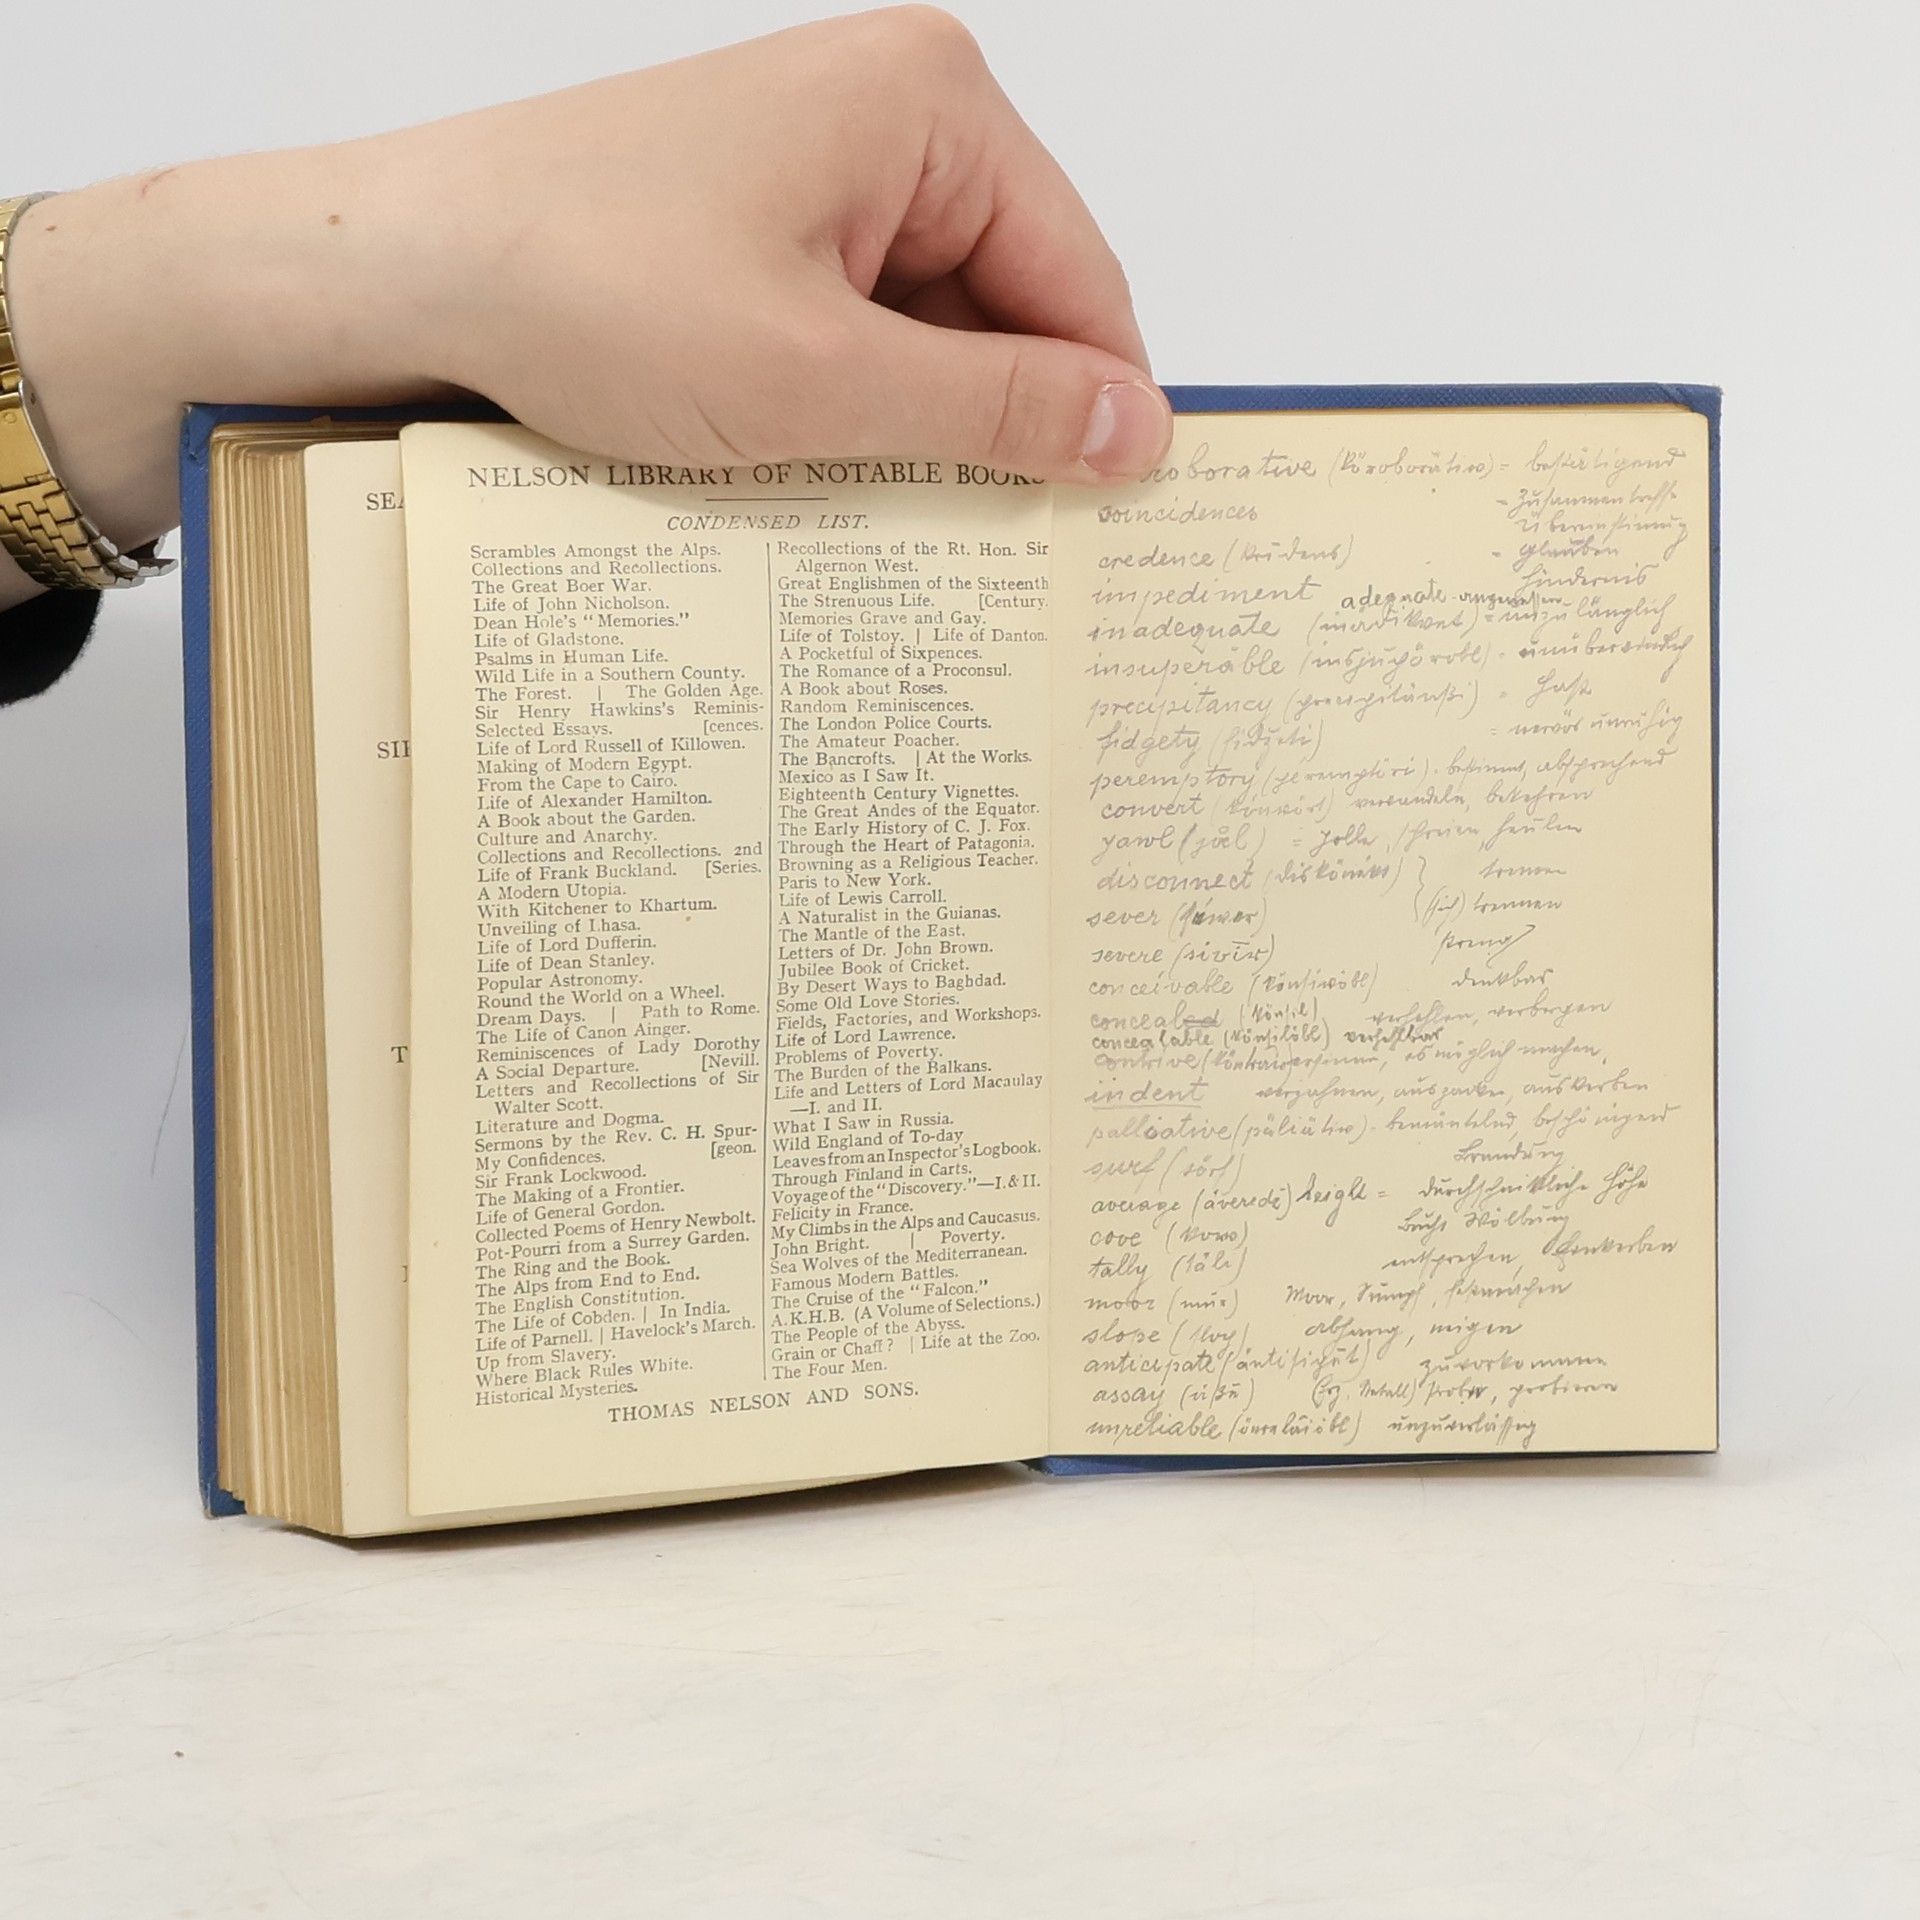 SEA
SIR
T
NELSON LIBRARY OF NOTABLE BOOKS
CONDENSED LIST.
Scrambles Amongst the Alps.
Collections and Recollections.
The Great Boer War.
Life of John Nicholson.
Dean Hole's "Memories."
Life of Gladstone.
Psalms in Human Life.
Wild Life in a Southern County.
The Forest. | The Golden Age.
Sir Henry Hawkins's Reminis-
Selected Essays. [cences.
Life of Lord Russell of Killowen.
Making of Modern Egypt.
From the Cape to Cairo.
Life of Alexander Hamilton.
A Book about the Garden.
Culture and Anarchy.
Collections and Recollections. 2nd
Life of Frank Buckland. [Series.
A Modern Utopia.
With Kitchener to Khartum.
Unveiling of Lhasa.
Life of Lord Dufferin.
Life of Dean Stanley.
Popular Astronomy.
Round the World on a Wheel.
Dream Days. | Path to Rome.
The Life of Canon Ainger.
Reminiscences of Lady Dorothy
A Social Departure. [Nevill.
Letters and Recollections of Sir
Walter Scott.
Literature and Dogma.
Sermons by the Rev. C. H. Spur-
My Confidences. [geon.
Sir Frank Lockwood.
The Making of a Frontier.
Life of General Gordon.
Collected Poems of Henry Newbolt.
Pot-Pourri from a Surrey Garden.
The Ring and the Book.
The Alps from End to End.
The English Constitution.
The Life of Cobden. | In India.
Life of Parnell. | Havelock's March.
Up from Slavery.
Where Black Rules White.
Historical Mysteries.
Recollections of the Rt. Hon. Sir
Algernon West.
Great Englishmen of the Sixteenth
The Strenuous Life. [Century.
Memories Grave and Gay.
Life of Tolstoy. | Life of Danton.
A Pocketful of Sixpences.
The Romance of a Proconsul.
A Book about Roses.
Random Reminiscences.
The London Police Courts.
The Amateur Poacher.
The Bancrofts. | At the Works.
Mexico as I Saw It.
Eighteenth Century Vignettes.
The Great Andes of the Equator.
The Early History of C. J. Fox.
Through the Heart of Patagonia.
Browning as a Religious Teacher.
Paris to New York.
Life of Lewis Carroll.
A Naturalist in the Guianas.
The Mantle of the East.
Letters of Dr. John Brown.
Jubilee Book of Cricket.
By Desert Ways to Baghdad.
Some Old Love Stories.
Fields, Factories, and Workshops.
Life of Lord Lawrence.
Problems of Poverty.
The Burden of the Balkans.
Life and Letters of Lord Macaulay
—I. and II.
What I Saw in Russia.
Wild England of To-day
Leaves from an Inspector's Logbook.
Through Finland in Carts.
Voyage of the "Discovery."—I. & II.
Felicity in France.
My Climbs in the Alps and Caucasus.
John Bright. | Poverty.
Sea Wolves of the Mediterranean.
Famous Modern Battles.
The Cruise of the "Falcon."
A.K.H.B. (A Volume of Selections.)
The People of the Abyss.
Grain or Chaff? | Life at the Zoo.
The Four Men.
THOMAS NELSON AND SONS.
roborative = bestätigend
coincidences
credence = Glauben
impediment Hindernis
adequate angemessen
inadequate = unzulänglich
insuperable
precipitancy = Hast
fidgety = nervös unruhig
peremptory bestimmt, absprechend
convert verwandeln, bekehren
yawl = Jolle, schreien, heulen
disconnect trennen
sever (sich) trennen
severe streng
conceivable denkbar
concealed verhehlen, verbergen
concealable verhehlbar
contrive ersinnen, es möglich machen,
indent verzahnen, auszacken, auskerben
palliative bemäntelnd, beschönigend
surf Brandung
average height = durchschnittliche Höhe
cove Bucht Wölbung
tally entsprechen,
moor Moor, Sumpf, festmachen
slope Abhang, neigen
anticipate zuvorkommen
assay (Erz, Metall) probieren
unreliable unzuverlässig